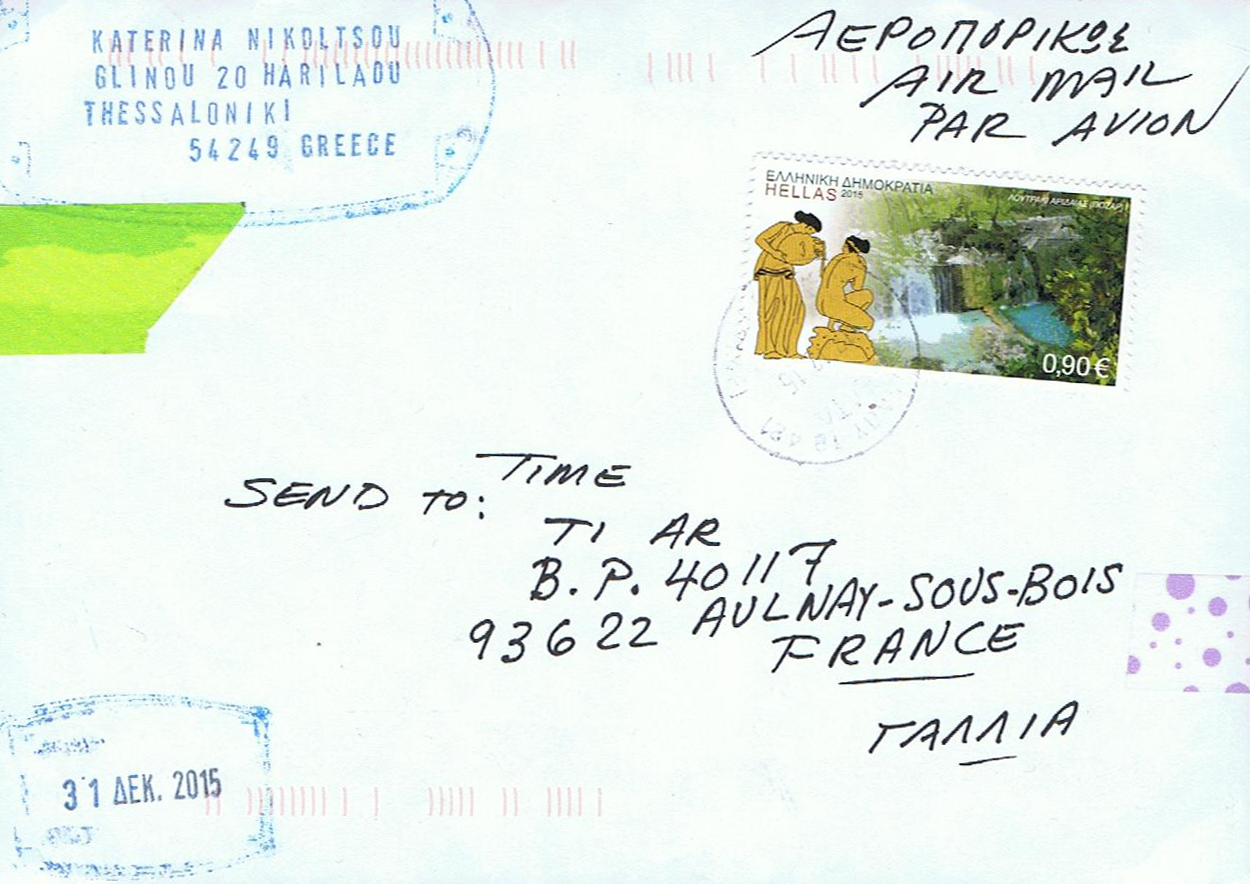 KATERINA NIKOLTSOU
GLINOU 20 HARILAOU
THESSALONIKI
54249 GREECE
ΑΕΡΟΠΟΡΙΚΩΣ
AIR MAIL
PAR AVION
ΕΛΛΗΝΙΚΗ ΔΗΜΟΚΡΑΤΙΑ
HELLAS 2015
ΛΟΥΤΡΑΚΙ ΑΡΙΔΑΙΑΣ (ΠΟΖΑΡ)
0,90€
SEND TO: TIME
TI AR
B. P. 40117
93622 AULNAY-SOUS-BOIS
FRANCE
ΓΑΛΛΙΑ
31 ΔΕΚ. 2015